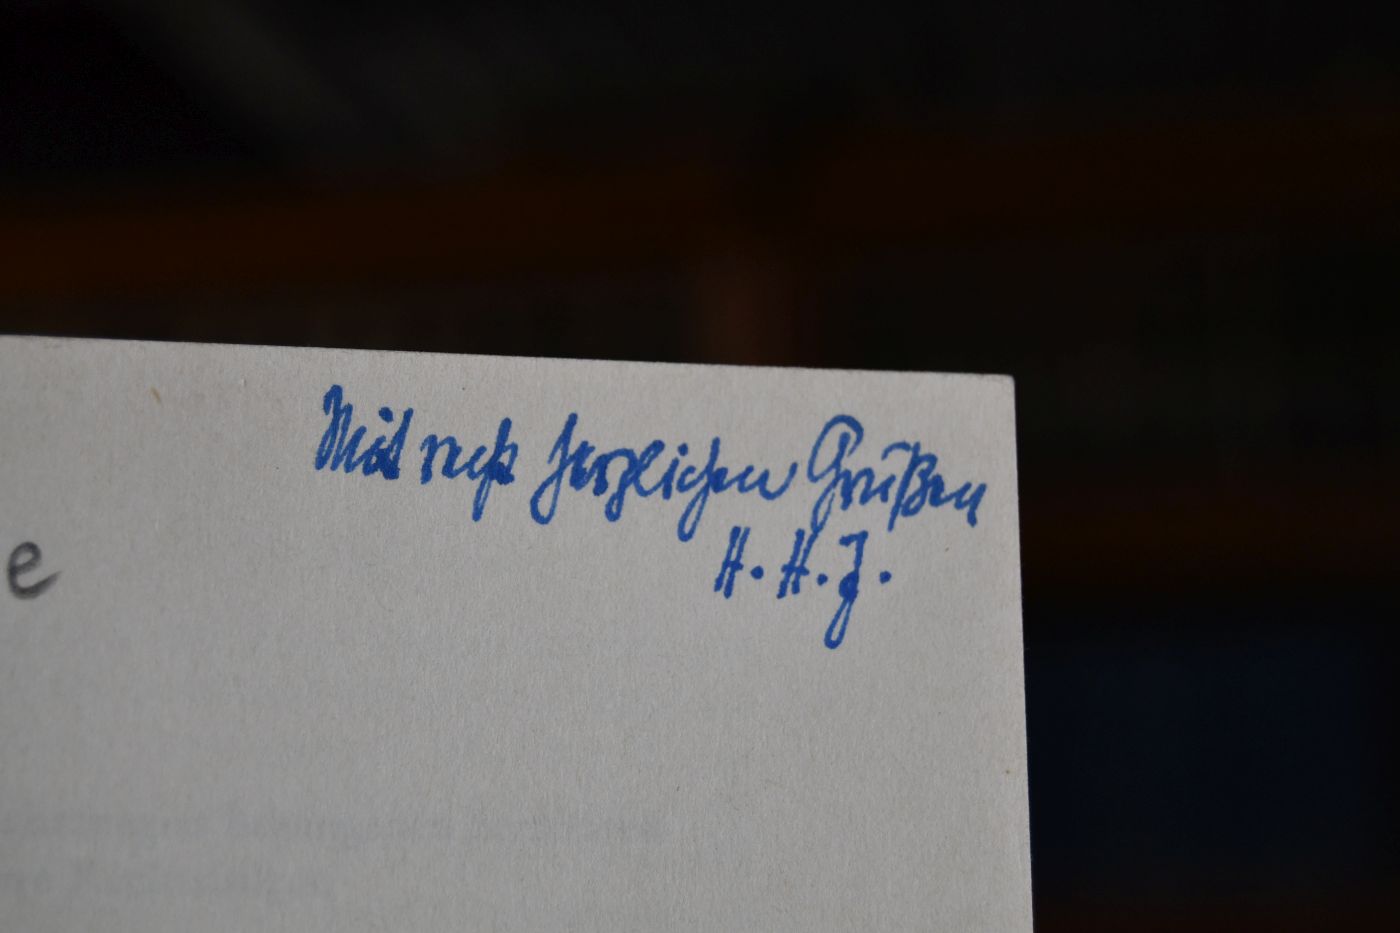 Mit recht herzlichen Grüßen
H. H. J.
e